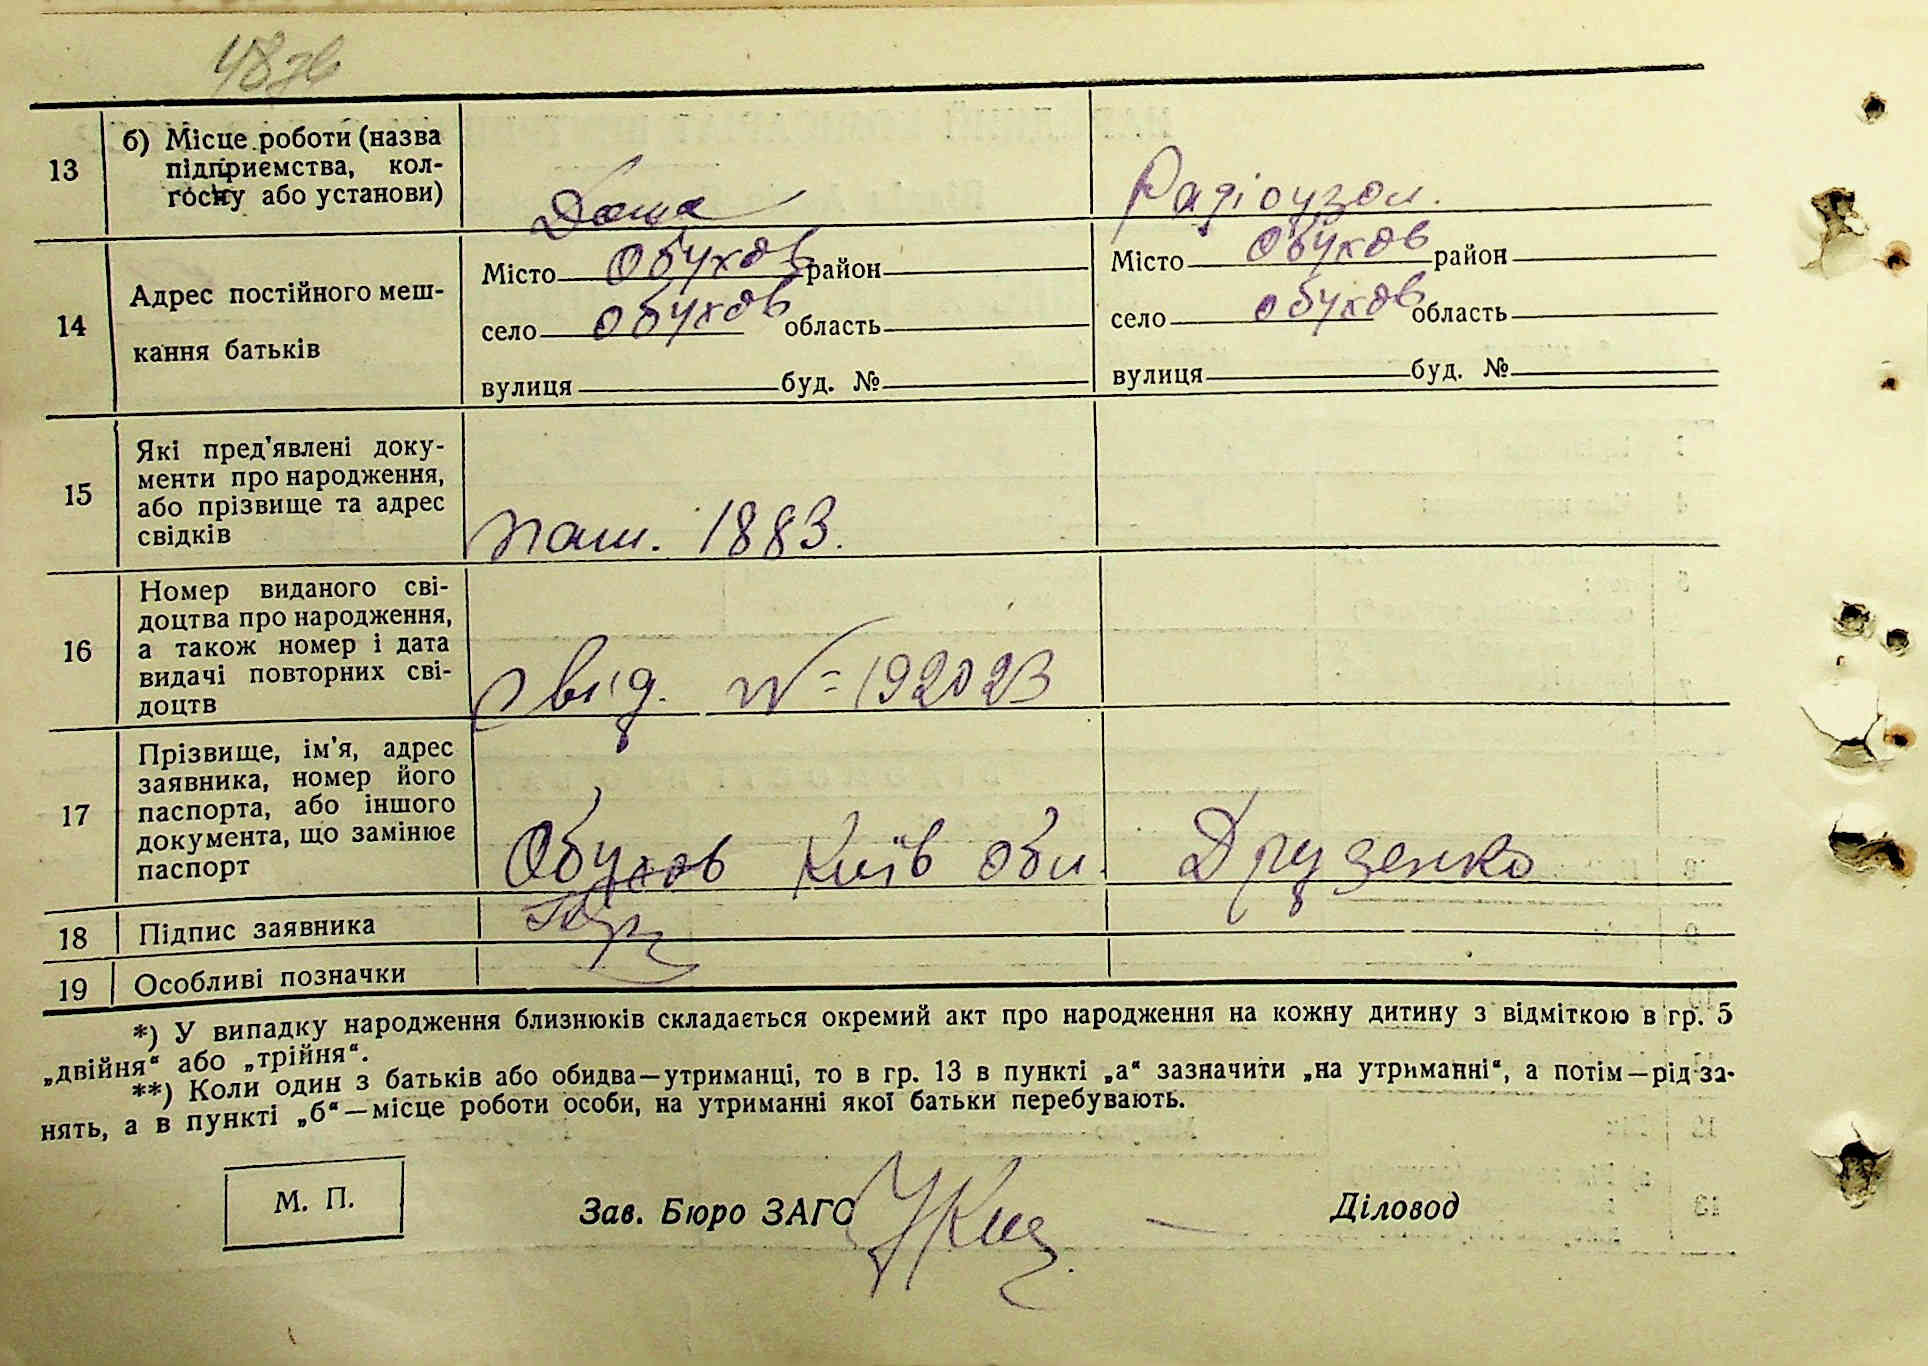 48зв
13
б) Місце роботи (назва
підприємства, кол-
госпу або установи)
Дома
Радіоузол.
14
Адрес постійного меш-
кання батьків
Місто Обухов район
село Обухов область
вулиця буд. №
Місто Обухов район
село Обухов область
вулиця буд. №
15
Які пред'явлені доку-
менти про народження,
або прізвище та адрес
свідків
паш. 1883.
16
Номер виданого сві-
доцтва про народження,
а також номер і дата
видачі повторних сві-
доцтв
свід. N=192023
17
Прізвище, ім'я, адрес
заявника, номер його
паспорта, або іншого
документа, що замінює
паспорт
Обухов Київ обл. Друзенко
18
Підпис заявника
19
Особливі позначки
*) У випадку народження близнюків складається окремий акт про народження на кожну дитину з відміткою в гр. 5
„двійня“ або „трійня“.
**) Коли один з батьків або обидва—утриманці, то в гр. 13 в пункті „а“ зазначити „на утриманні“, а потім—рід за-
нять, а в пункті „б“—місце роботи особи, на утриманні якої батьки перебувають.
М. П.
Зав. Бюро ЗАГС
Діловод